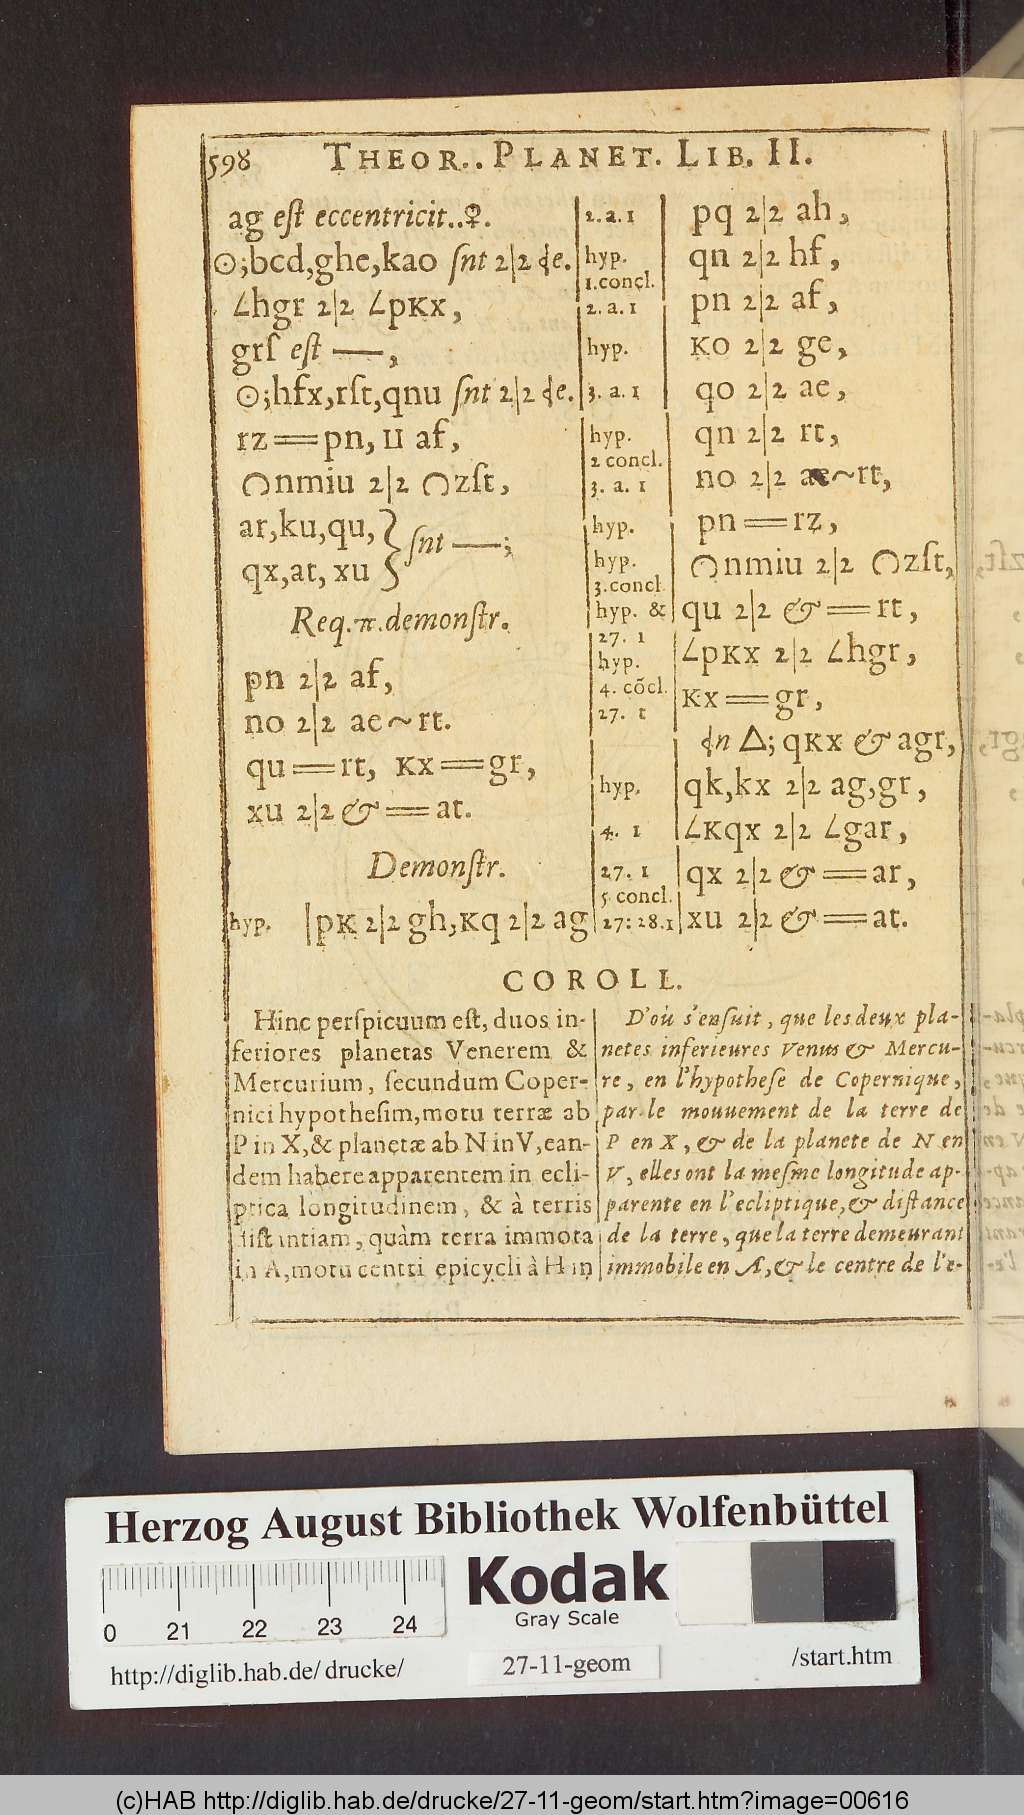 598 THEOR.. PLANET. LIB. II.
ag eſt eccentricit..♀.
☉;bcd,ghe,kao ſnt 2|2 de.
∠hgr 2|2 ∠pKx,
grſ eſt —,
☉;hfx,rſt,qnu ſnt 2|2 de.
rz=pn, II af,
∩nmiu 2|2 ∩zſt,
ar,ku,qu,
qx,at, xu } ſnt —;
Req.π.demonſtr.
pn 2|2 af,
no 2|2 ae~rt.
qu=rt, Kx=gr,
xu 2|2 &=at.
Demonſtr.
hyp. |pK 2|2 gh,Kq 2|2 ag
2. a. 1 | pq 2|2 ah,
hyp. | qn 2|2 hf,
1.concl.
2. a. 1 | pn 2|2 af,
hyp. | KO 2|2 ge,
3. a. 1 | qo 2|2 ae,
hyp. | qn 2|2 rt,
2 concl.
3. a. 1 | no 2|2 ae~rt,
hyp. | pn=rz,
hyp. | ∩nmiu 2|2 ∩zſt,
3.concl
hyp. & | qu 2|2 &=rt,
27. 1
hyp. | ∠pKx 2|2 ∠hgr,
4. cõcl.
27. 1 | Kx=gr,
dn Δ; qKx & agr,
hyp. | qk,kx 2|2 ag,gr,
4. 1 | ∠Kqx 2|2 ∠gar,
27. 1 | qx 2|2 &=ar,
5 concl.
27: 28.1 | xu 2|2 &=at.
COROLL.
Hinc perſpicuum eſt, duos in-
feriores planetas Venerem &
Mercurium, ſecundum Coper-
nici hypotheſim, motu terræ ab
P in X, & planetæ ab N in V, ean-
dem habere apparentem in ecli-
ptica longitudinem, & à terris
diſtantiam, quàm terra immota
in A, motu centri epicycli à H in
D'où s'enſuit, que les deux pla-
netes inferieures Venus & Mercu-
re, en l'hypotheſe de Copernique,
par le mouuement de la terre de
P en X, & de la planete de N en
V, elles ont la meſme longitude ap-
parente en l'ecliptique, & diſtance
de la terre, que la terre demeurant
immobile en A, & le centre de l'e-
Herzog August Bibliothek Wolfenbüttel
Kodak
Gray Scale
0 21 22 23 24
http://diglib.hab.de/drucke/
27-11-geom
/start.htm
(c)HAB http://diglib.hab.de/drucke/27-11-geom/start.htm?image=00616